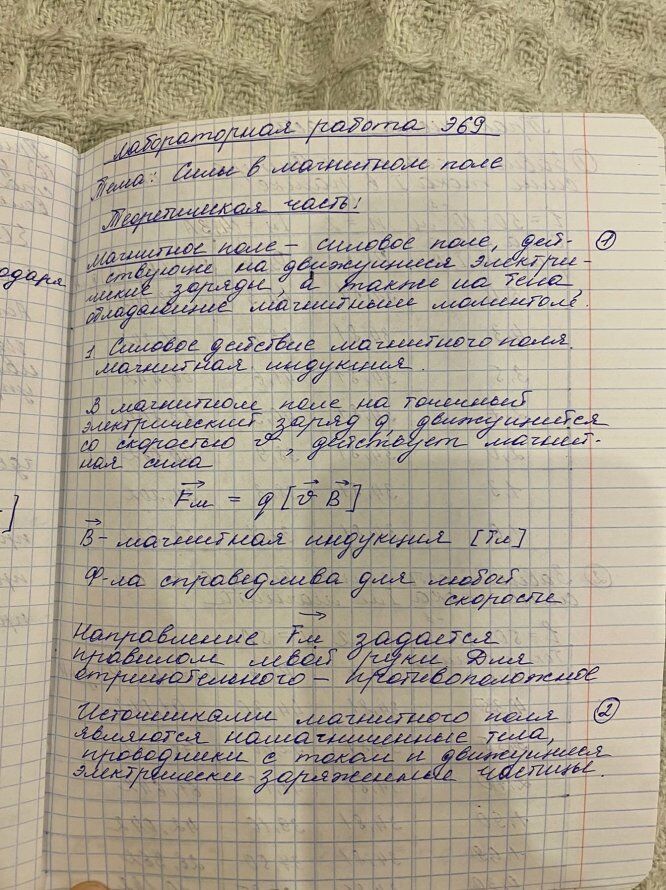 Лабораторная работа Э69
Тема: Силы в магнитном поле
Теоретическая часть:
Магнитное поле – силовое поле, дей- ①
ствующие на движущиеся электри-
ческие заряды, а также на тела,
обладающие магнитным моментом.
1 Силовое действие магнитного поля.
магнитная индукция.
В магнитном поле на точечный
электрический заряд q, движущийся
со скоростью v⃗, действует магнит-
ная сила
F⃗м = q [v⃗ B⃗]
B⃗ – магнитная индукция [Тл]
Ф-ла справедлива для любой
скорости
Направление F⃗м задается
правилом левой руки Для
отрицательного – противоположное
Источниками магнитного поля ②
являются намагниченные тела,
проводники с током и движущиеся
электрически заряженные частицы.
одаря
]